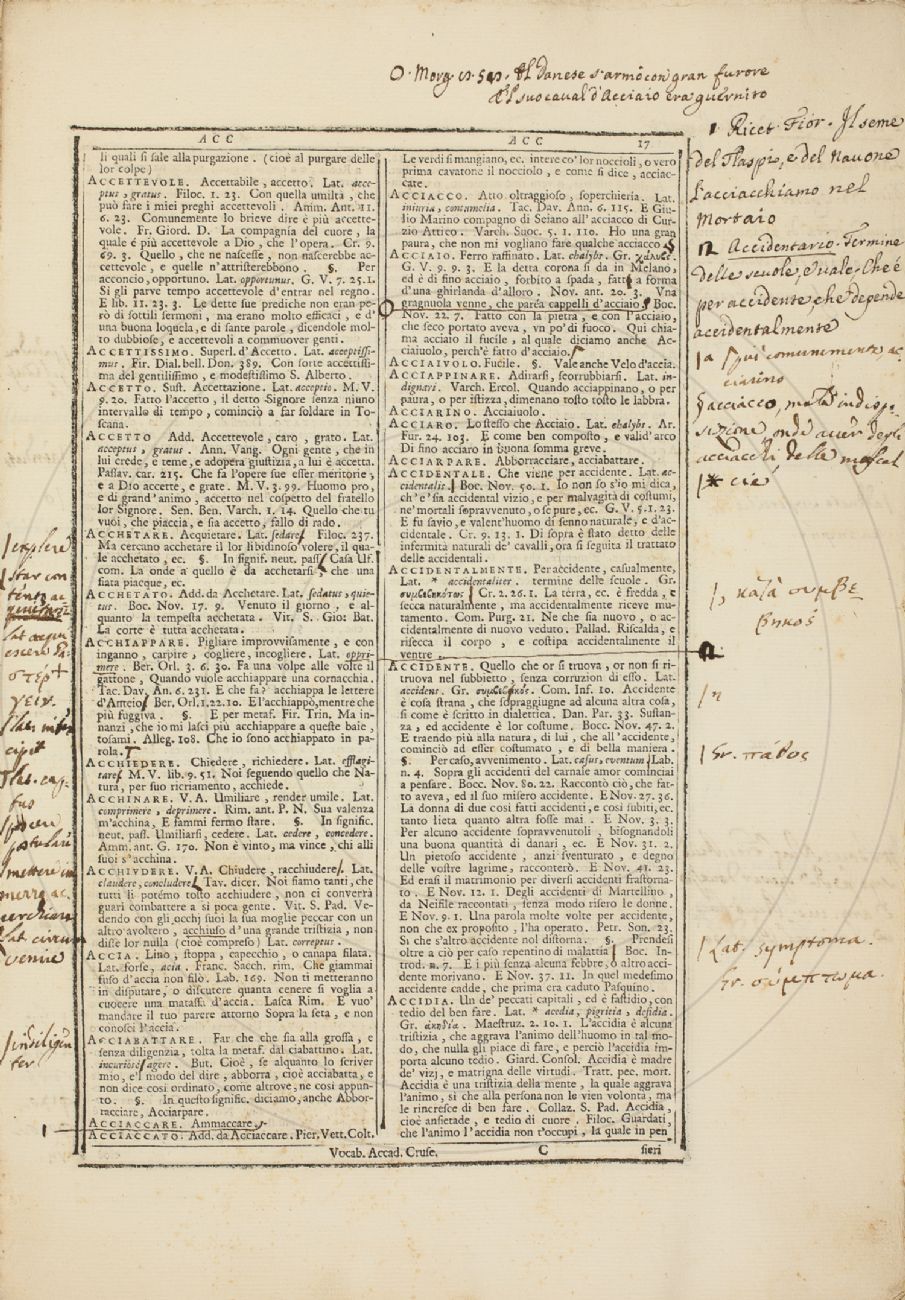 O. Morg. 13. 51. Il Danese s'armò con gran furore
E'l suo caval d'Acciaio era guernito
A C C
li quali si sale alla purgazione. (cioè al purgare delle
lor colpe)
ACCETTEVOLE. Accettabile, accetto. Lat. acce-
ptus, gratus. Filoc. 1. 23. Con quella umiltà, che
può fare i miei preghi accettevoli. Amm. Ant. 11.
6. 23. Comunemente lo brieve dire è più accette-
vole. Fr. Giord. D. La compagnia del cuore, la
quale é più accettevole a Dio, che l'opera. Cr. 9.
69. 3. Quello, che ne nascesse, non nascerebbe ac-
cettevole, e quelle n'attristerebbono. §. Per
acconcio, opportuno. Lat. opportunus. G. V. 7. 25. 1.
Sì gli parve tempo accettevole d'entrar nel regno.
E lib. 11. 23. 3. Le dette sue prediche non eran pe-
rò di sottili sermoni, ma erano molto efficaci, e d'
una buona loquela, e di sante parole, dicendole mol-
to dubbiose, e accettevoli a commuover genti.
ACCETTISSIMO. Superl. d'Accetto. Lat. acceptissi-
mus. Fir. Dial. bell. Don. 389. Con forte accettissi-
ma del gentilissimo, e modestissimo S. Alberto.
ACCETTO. Sust. Accettazione. Lat. acceptio. M. V.
9. 20. Fatto l'accetto, il detto Signore senza niuno
intervallo di tempo, cominciò a far soldare in To-
scana.
ACCETTO Add. Accettevole, caro, grato. Lat.
acceptus, gratus. Ann. Vang. Ogni gente, che in
lui crede, e teme, e adopera giustizia, a lui è accetta.
Passav. car. 215. Che fa l'opere sue esser meritorie,
e a Dio accette, e grate. M. V. 3. 99. Huomo pro,
e di grand'animo, accetto nel cospetto del fratello
lor Signore. Sen. Ben. Varch. 1. 14. Quello che tu
vuoi, che piaccia, e sia accetto, fallo di rado.
ACCHETARE. Acquietare. Lat. sedare Filoc. 237.
Ma cercano acchetare il lor libidinoso volere, il qua-
le acchetato, ec. §. In signif. neut. pass. Casa Uf.
com. La onde a quello è da acchetarsi, che una
fiata piacque, ec.
ACCHETATO. Add. da Acchetare. Lat. sedatus, quie-
tus. Boc. Nov. 17. 9. Venuto il giorno, e al-
quanto la tempesta acchetata. Vit. S. Gio: Bat.
La corte è tutta acchetata.
ACCHIAPPARE. Pigliare improvvisamente, e con
inganno, carpire, cogliere, incogliere. Lat. oppri-
mere. Ber. Orl. 3. 6. 30. Fa una volpe alle volte il
gattone, Quando vuole acchiappare una cornacchia.
Tac. Dav. An. 6. 231. E che fa? acchiappa le lettere
d'Anteio Ber. Orl. 1. 22. 10. E l'acchiappò, mentre che
più fuggiva. §. E per metaf. Fir. Trin. Ma in-
nanzi, che io mi lasci più acchiappare a queste baie,
tosami. Alleg. 108. Che io sono acchiappato in pa-
rola.
ACCHIEDERE. Chiedere, richiedere. Lat. efflagi-
tare M. V. lib. 9. 51. Noi seguendo quello che Na-
tura, per suo ricriamento, acchiede.
ACCHINARE. V. A. Umiliare, render umile. Lat.
comprimere, deprimere. Rim. ant. P. N. Sua valenza
m'acchina, E fammi fermo stare. §. In signific.
neut. pass. Umiliarsi, cedere. Lat. cedere, concedere.
Amm. ant. G. 170. Non è vinto, ma vince, chi alli
suoi s'acchina.
ACCHIVDERE. V. A. Chiudere, racchiudere Lat.
claudere, concludere Tav. dicer. Noi siamo tanti, che
tutti li potemo tosto acchiudere, non ci converrà
guari combattere a si poca gente. Vit. S. Pad. Ve-
dendo con gli occhj suoi la sua moglie peccar con un
altro avoltero, acchiuso d'una grande tristizia, non
disse lor nulla (cioè compreso) Lat. correptus.
ACCIA. Lino, stoppa, capecchio, o canapa filata.
Lat. forse, acia. Franc. Sacch. rim. Che giammai
fuso d'accia non filò. Lab. 169. Non ti metteranno
in disputare, o discutere quanta cenere si voglia a
cuocere una matassa d'accia. Lasca Rim. E vuo'
mandare il tuo parere attorno Sopra la seta, e non
conosci l'accia.
ACCIABATTARE. Far che che sia alla grossa, e
senza diligenzia, tolta la metaf. dal ciabattino. Lat.
incuriosè agere. But. Cioè, se alquanto lo scriver
mio, e'l modo del dire, abborra, cioè acciabatta, e
non dice così ordinato, come altrove, ne così appun-
to. §. In questo signific. diciamo, anche Abbor-
racciare, Acciarpare.
ACCIACCARE. Ammaccare.
ACCIACCATO. Add. da Acciaccare. Pier. Vett. Colt.
A C C 17
Le verdi si mangiano, ec. intere co' lor noccioli, o vero
prima cavatone il nocciolo, e come si dice, acciac-
cate.
ACCIACCO. Atto oltraggioso, soperchieria. Lat.
iniuria, contumelia. Tac. Dav. Ann. 6. 115. E Giu-
lio Marino compagno di Seiano all'acciacco di Cur-
zio Attico. Varch. Suoc. 5. 1. 110. Ho una gran
paura, che non mi vogliano fare qualche acciacco
ACCIAIO. Ferro raffinato. Lat. chalybs. Gr. χάλυψ.
G. V. 9. 9. 3. E la detta corona si da in Melano,
ed è di fino acciaio, forbito a spada, fatta a forma
d'una ghirlanda d'alloro, Nov. ant. 20. 3. Vna
gragnuola venne, che parea cappelli d'acciaio. Boc.
Nov. 22. 7. Fatto con la pietra, e con l'acciaio,
che seco portato aveva, vn po' di fuoco. Qui chia-
ma acciaio il fucile, al quale diciamo anche Ac-
ciaiuolo, perch'è fatto d'acciaio.
ACCIAIVOLO. Fucile. §. Vale anche Velo d'accia.
ACCIAPPINARE. Adirarsi, scorrubbiarsi. Lat. in-
dignari. Varch. Ercol. Quando acciappinano, o per
paura, o per istizza, dimenano tosto tosto le labbra.
ACCIARINO. Acciaiuolo.
ACCIARO. Lo stesso che Acciaio. Lat. chalybs. Ar.
Fur. 24. 103. E come ben composto, e valid'arco
Di fino acciaro in buona somma greve.
ACCIARPARE. Abborracciare, acciabattare.
ACCIDENTALE. Che viene per accidente. Lat. ac-
cidentalis. Boc. Nov. 50. 1. Io non so s'io mi dica,
ch'e' sia accidental vizio, e per malvagità di costumi,
ne' mortali sopravvenuto, o se pure, ec. G. V. 5. 1. 23.
E fu savio, e valent'huomo di senno naturale, e d'ac-
cidentale. Cr. 9. 13. 1. Di sopra è stato detto delle
infermità naturali de' cavalli, ora si seguita il trattato
delle accidentali.
ACCIDENTALMENTE. Per accidente, casualmente,
Lat. * accidentaliter. termine delle scuole. Gr.
συμβεβηκότως Cr. 2. 26. 1. La terra, ec. è fredda, e
secca naturalmente, ma accidentalmente riceve mu-
tamento. Com. Purg. 21. Ne che sia nuovo, o ac-
cidentalmente di nuovo veduto. Pallad. Riscalda, e
risecca il corpo, e costipa accidentalmente il
ventre
ACCIDENTE. Quello che or si truova, or non si ri-
truova nel subbietto, senza corruzion di esso. Lat.
accidens. Gr. συμβεβηκός. Com. Inf. 10. Accidente
è cosa strana, che sopraggiugne ad alcuna altra cosa,
sì come è scritto in dialettica. Dan. Par. 33. Sustan-
za, ed accidente è lor costume. Bocc. Nov. 47. 2.
E traendo più alla natura di lui, che all'accidente,
cominciò ad esser costumato, e di bella maniera.
§. Per caso, avvenimento. Lat. casus, eventum Lab.
n. 4. Sopra gli accidenti del carnale amor cominciai
a pensare. Bocc. Nov. 80. 22. Raccontò ciò, che fat-
to aveva, ed il suo misero accidente. E Nov. 27. 36.
La donna di due così fatti accidenti, e così subiti, ec.
tanto lieta quanto altra fosse mai. E Nov. 3. 3.
Per alcuno accidente sopravvenutoli, bisognandoli
una buona quantità di danari, ec. E Nov. 31. 2.
Un pietoso accidente, anzi sventurato, e degno
delle vostre lagrime, racconterò. E Nov. 41. 23.
Ed erasi il matrimonio per diversi accidenti frastorna-
to. E Nov. 12. 1. Degli accidenti di Martellino,
da Neifile raccontati, senza modo risero le donne.
E Nov. 9. 1. Una parola molte volte per accidente,
non che ex proposito, l'ha operato. Petr. Son. 23.
Sì che s'altro accidente nol distorna. §. Prendesi
oltre a ciò per caso repentino di malattia Boc. In-
trod. n. 7. E i più senza alcuna febbre, o altro acci-
dente morivano. E Nov. 37. 11. In quel medesimo
accidente cadde, che prima era caduto Pasquino.
ACCIDIA. Un de' peccati capitali, ed è fastidio, con
tedio del ben fare. Lat. * acedia, pigritia, desidia.
Gr. ἀκηδία. Maestruz. 2. 10. 1. L'accidia è alcuna
tristizia, che aggrava l'animo dell'huomo in tal mo-
do, che nulla gli piace di fare, e perciò l'accidia im-
porta alcuno tedio. Giard. Consol. Accidia è madre
de' vizj, e matrigna delle virtudi. Tratt. pec. mort.
Accidia è una tristizia della mente, la quale aggrava
l'animo, sì che alla persona non le vien volontà, ma
le rincresce di ben fare. Collaz. S. Pad. Accidia,
cioè ansietade, e tedio di cuore. Filoc. Guardati,
che l'animo l'accidia non t'occupi, la quale in pen
Vocab. Accad. Crusc. C sieri
explere
star con
tento ac
Lat. acqui
escere Gr.
στέρ
γειν.
Lat. inter
cipit
Lat. cap
tus
postulare
mettere in
mezzo ac
cerchiare
Lat. circum
venire
indiligen
ter
1 Ricet. Fior. Il seme
del Tlaspi, e del Navone
l'acciacchiamo nel
mortaio
Accidentario. Termine
delle scuole, e vale, Che è
per accidente, che depende
accidentalmente
più comunemente ac
ciarino
§ acciacco, indispo
sizione, onde aver degli
acciacchi
cié
κατὰ συμβε
βηκός
η
Gr. πάθος
Lat. symptoma.
Gr. σύμπτωμα.